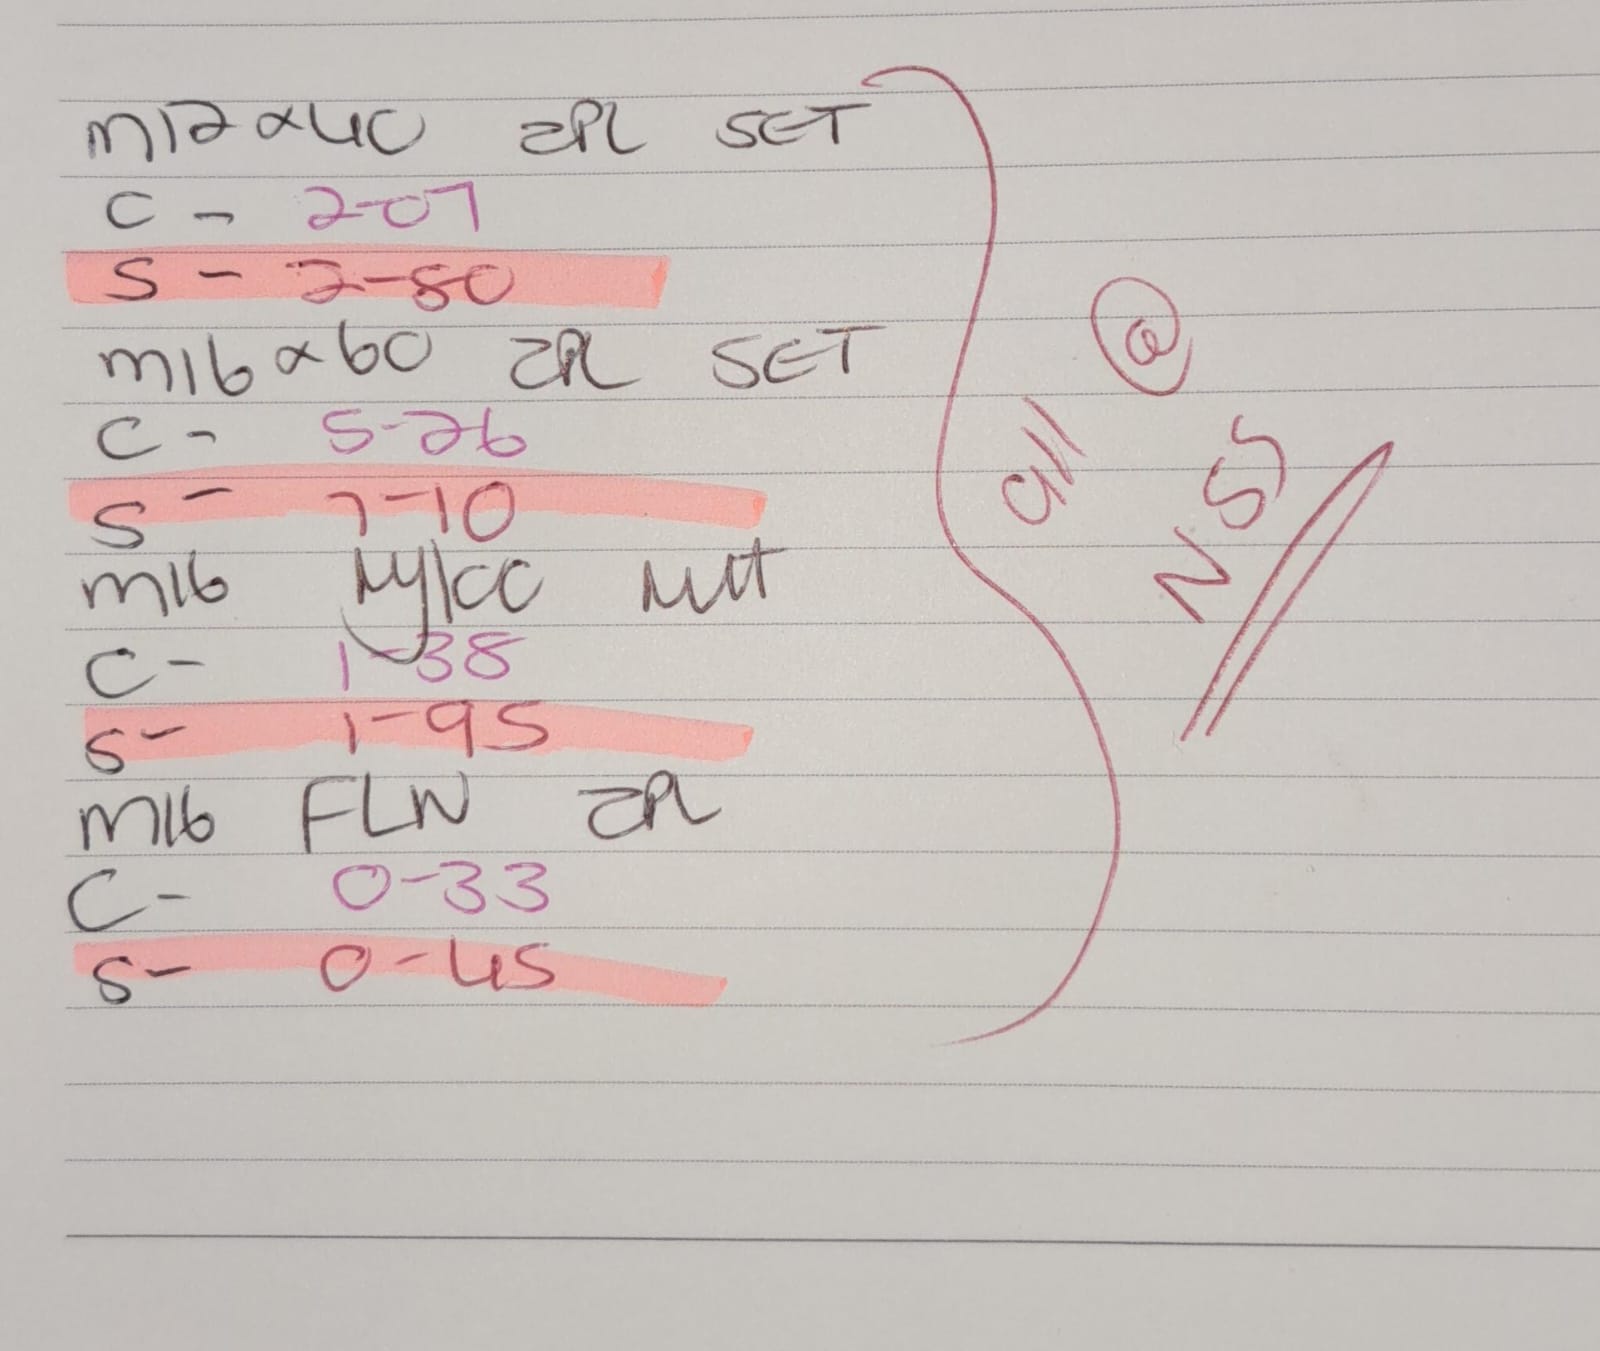 M12x40 ZPL SET
C - 2-07
S - 2-80
M16x60 ZPL SET
C - 5-26
S - 7-10
M16 Nyloc Nut
C - 1-38
S - 1-95
M16 FLW ZPL
C - 0-33
S - 0-45
all @
NSS